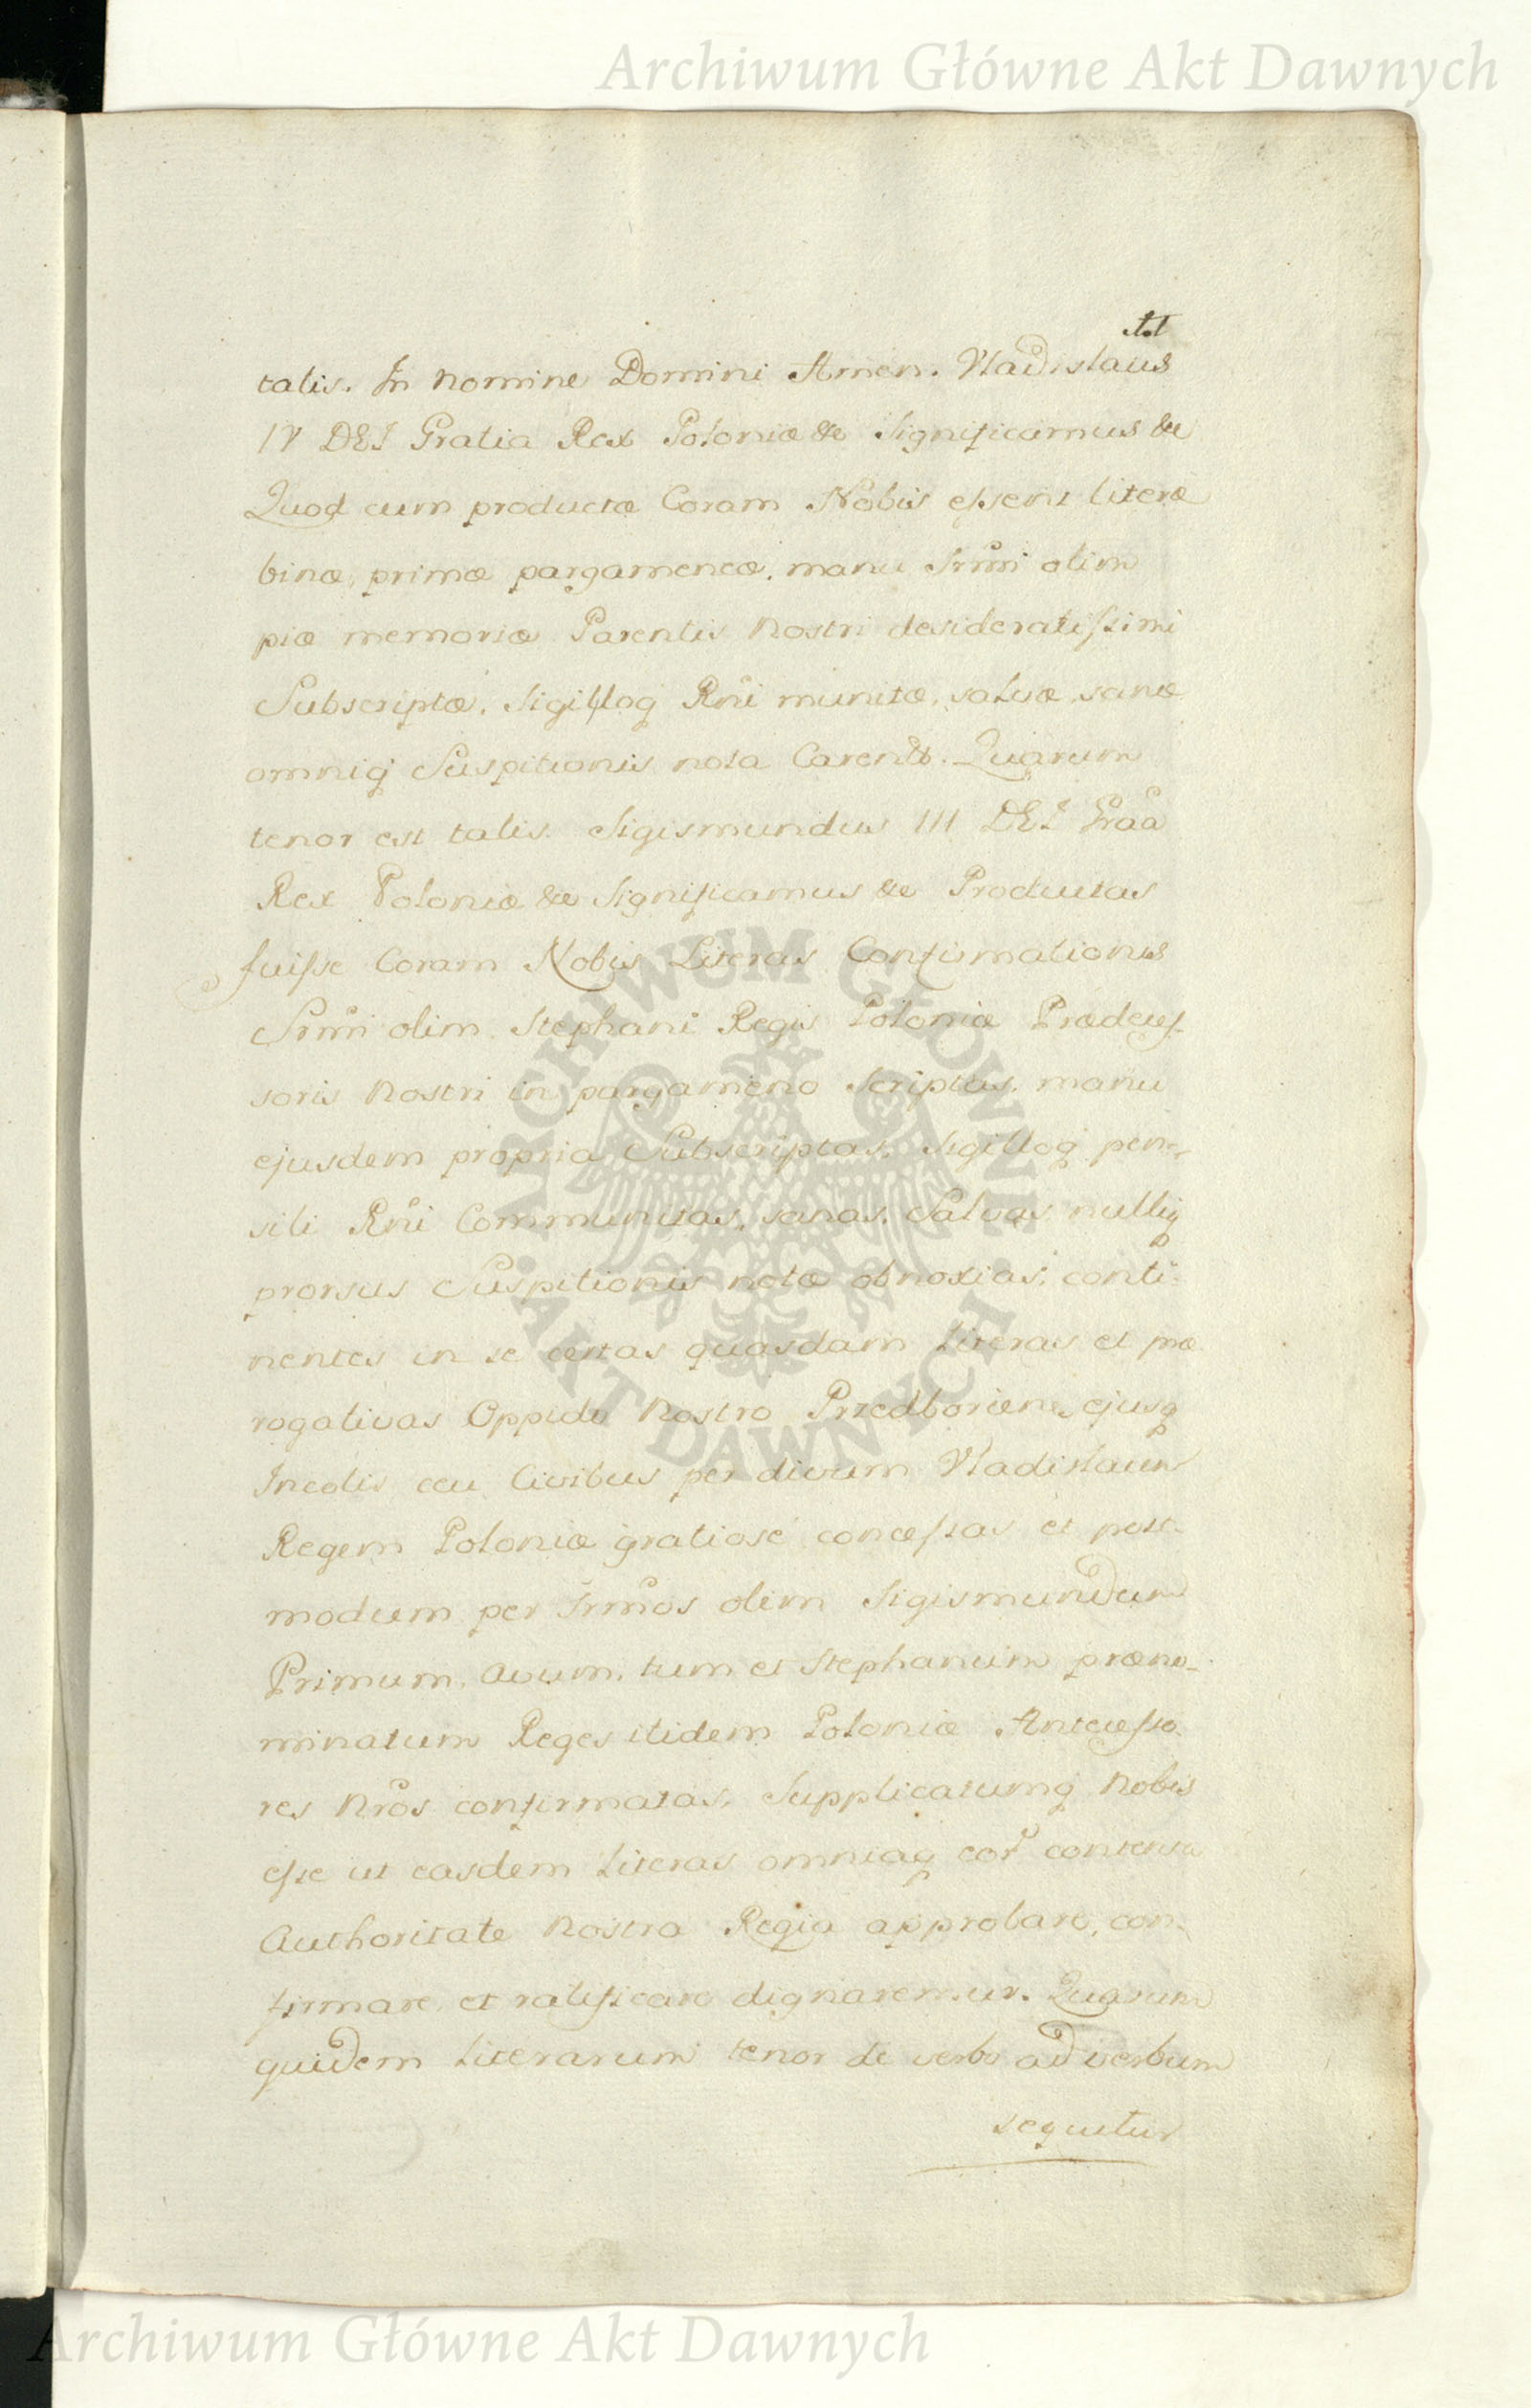 Archiwum Główne Akt Dawnych
talis. In Nomine Domini Amen. Vladislaus
IV DEI Gratia Rex Poloniæ &c Significamus &c
Quod cum productæ Coram Nobis essent literæ
binæ, primæ pargameneæ, manu Srmi olim
piæ memoriæ Parentis Nostri desideratissimi
Subscriptæ, Sigilloq Rni munitæ, salvæ, sanæ
omniq Suspitionis nota Carentes. Quarum
tenor est talis. Sigismundus III DEI Graa
Rex Poloniæ &c Significamus &c Productas
fuisse Coram Nobis Literas Confirmationis
Srmi olim Stephani Regis Poloniæ Prædeces-
soris Nostri in pargameno Scriptas, manu
ejusdem propria Subscriptas, Sigilloq pen-
sili Rni Communitas, sanas, Salvas, nulliq
prorsus Suspitionis notæ obnoxias, conti-
nentes in se certas quasdam Literas et præ
rogativas Oppido Nostro Przedborien, ejusq
Incolis ceu Civibus per divum Vladislaum
Regem Poloniæ gratiosé concessas et post-
modum per Srmos olim Sigismundum
Primum, Avum, tum et Stephanum præno-
minatum Reges itidem Poloniæ Antecesso-
res Nros confirmatas, Supplicatumq Nobis
esse ut easdem Literas omniaq eor contenta
Authoritate Nostra Regia approbare, con-
firmare et ratificare dignaremur. Quarum
quidem Literarum tenor de verbo ad verbum
sequitur
ARCHIWUM GŁÓWNE
AKT DAWNYCH
Archiwum Główne Akt Dawnych